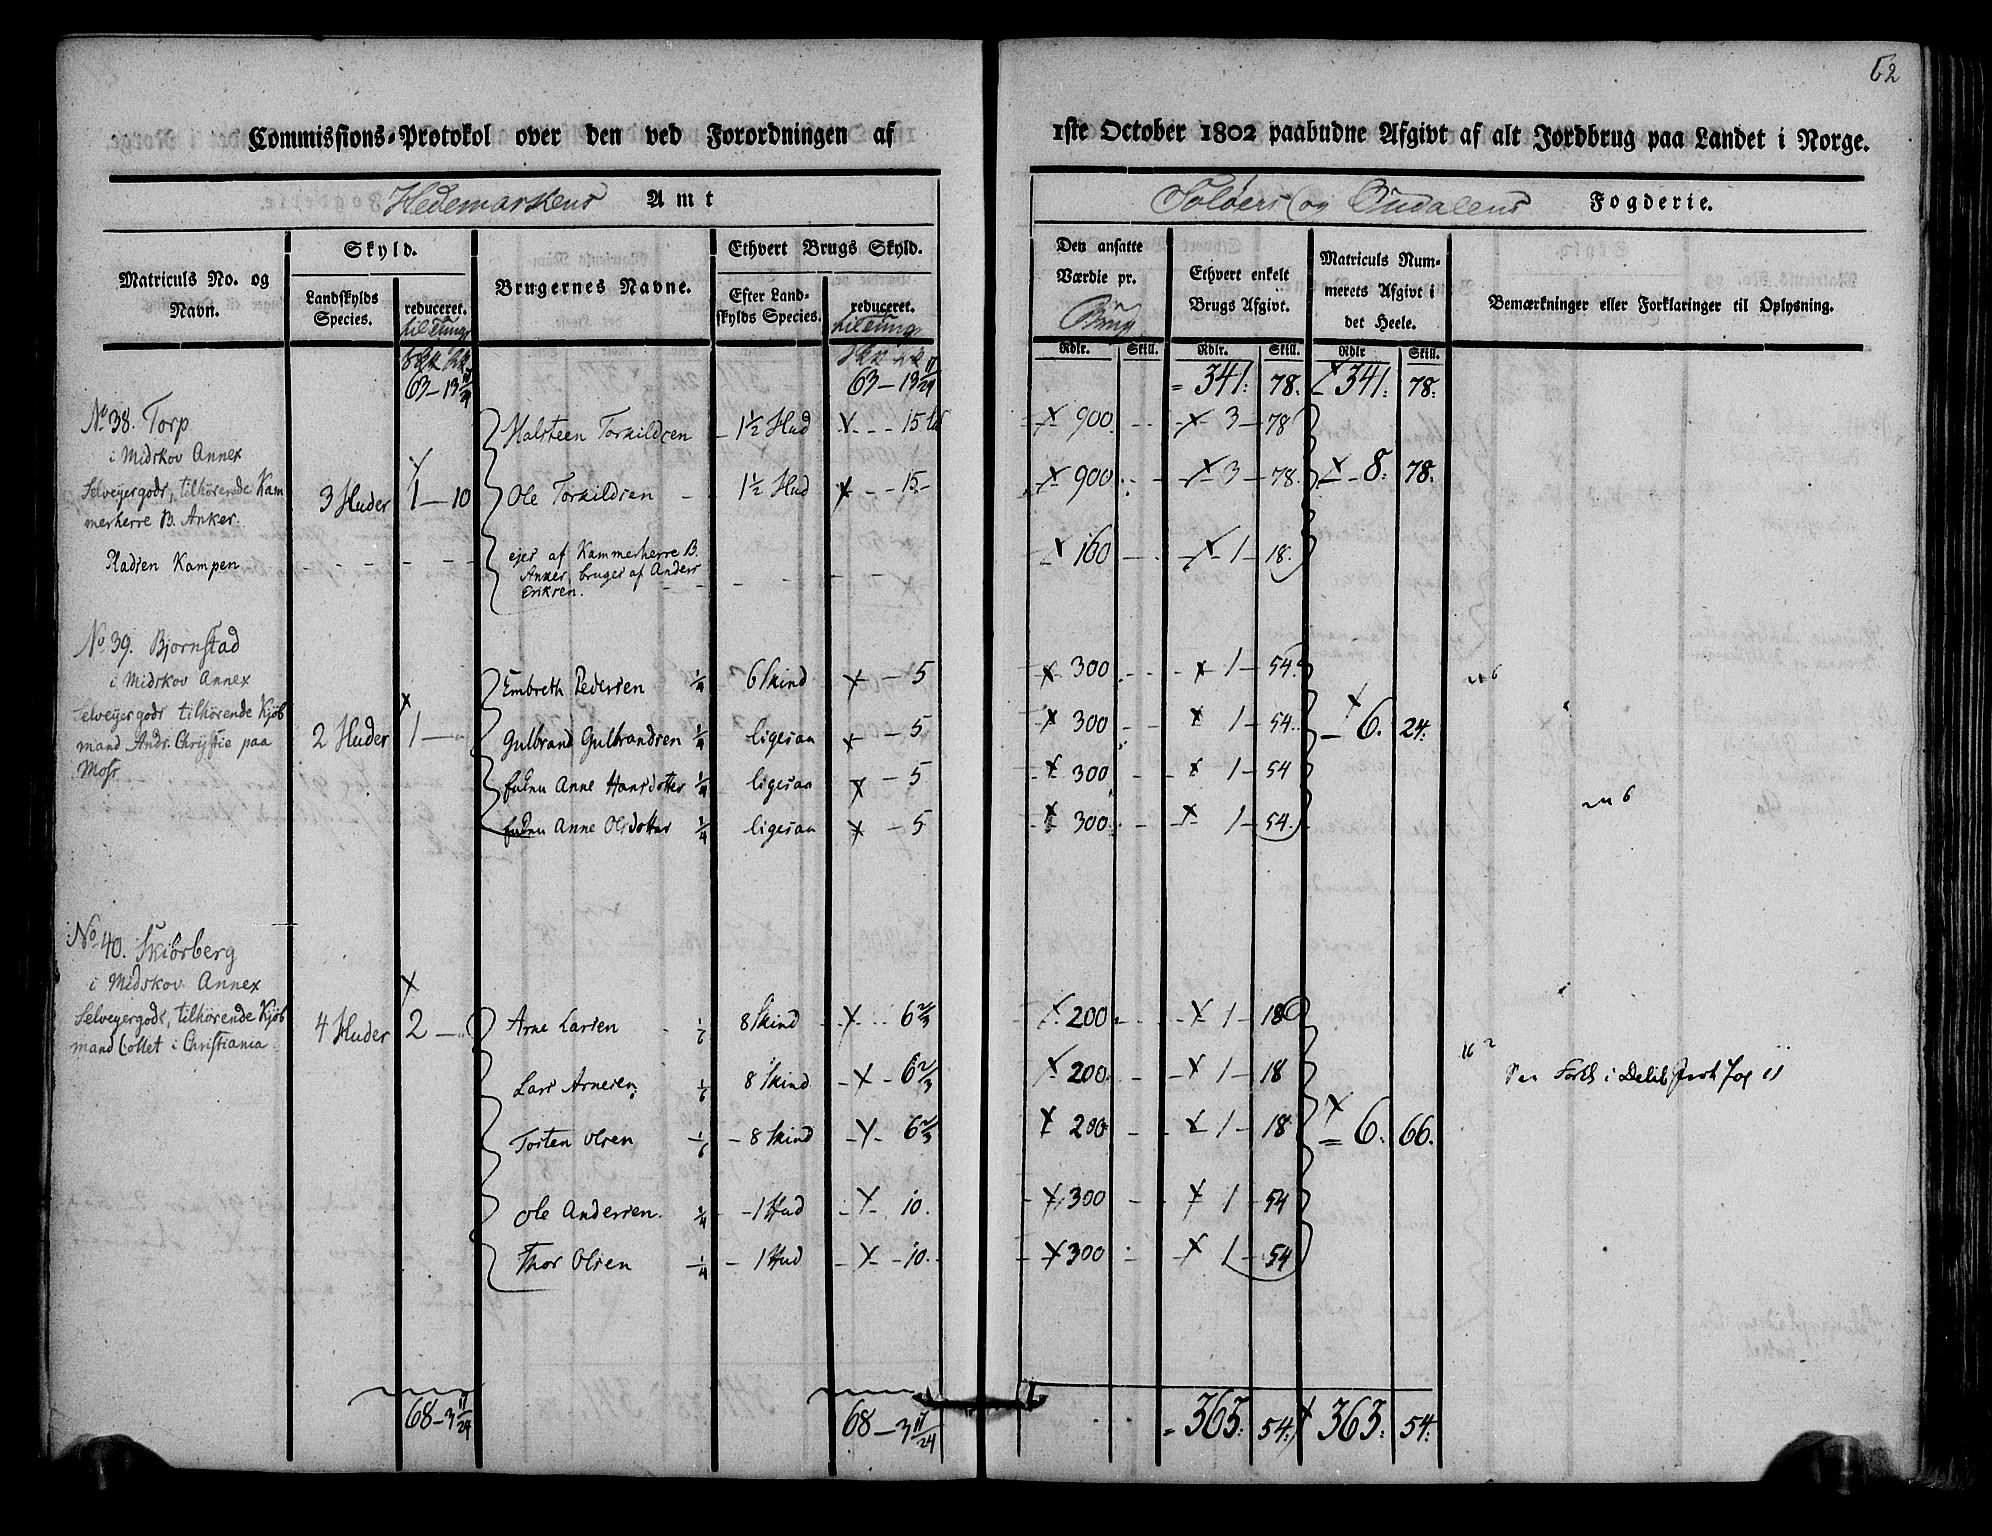 62
Commissions-Protokol over den ved Forordningen af 1ste October 1802 paabudne Afgivt af alt Jordbrug paa Landet i Norge.
Hedemarkens Amt
Soløers og Oudalens Fogderie.
Matriculs No. og Navn.
Skyld.
Landskylds Species.
reduceret.
til Tunge
Brugernes Navne.
Ethvert Brugs Skyld.
Efter Landskylds Species.
reduceret.
til Tunge
Den ansatte Værdie pr.
Brug
Ethvert enkelt Brugs Afgivt.
Matriculs Nummerets Afgivt i det Heele.
Bemærkninger eller Forklaringer til Oplysning.
Rdlr. Skill. Rdlr. Skill. Rdlr Skill.
63 - 13 11/24 63 - 13 11/24 = 341: 78. 341: 78:
No 38. Torp
i Midskov Annex
Selveyergods, tilhørende Kam
merherre B. Anker.
3 Huder 1 - 10
Halsteen Torkildsen 1½ Hud 15 900 3 - 78
Ole Torkildsen 1½ Hud 15 900 3 - 78. 8. 78.
Pladsen Kampen
ejes af Kammerherre B.
Anker, bruges af Anders
Eriksen.
160 1 - 18.
No 39. Bjornstad
i Midskov Annex
Selveyergods tilhörende Kjöb
mand Andr. Chrystie paa
Moss
2 Huder 1
Embreth Pedersen ¼ 6 Skind 5 300 1 - 54.
Gulbrand Gulbrandsen ¼ ligesaa 5 300 1 - 54. 6. 24.
Enken Anne Hansdotter ¼ ligesaa 5 300 1 - 54
Enken Anne Olsdotter ¼ ligesaa 5 300 1 - 54.
No 40. Skiörberg
i Midskov Annex
Selveyergods, tilhörende Kjöb
mand Collet i Christiania
4 Huder 2
Arne Larsen 1/6 8 Skind 6⅔ 200 1 - 18
Lars Arnesen 1/6 8 Skind 6⅔ 200 1 - 18
Torsten Olsen 1/6 8 Skind 6⅔ 200 1 - 18 6. 66.
Ole Andersen. ¼ 1 Hud 10. 300 1 - 54
Thor Olsen ¼ 1 Hud 10. 300 1 - 54
68 - 3 11/24 68 - 3 11/24 = 363: 54: 363: 54: